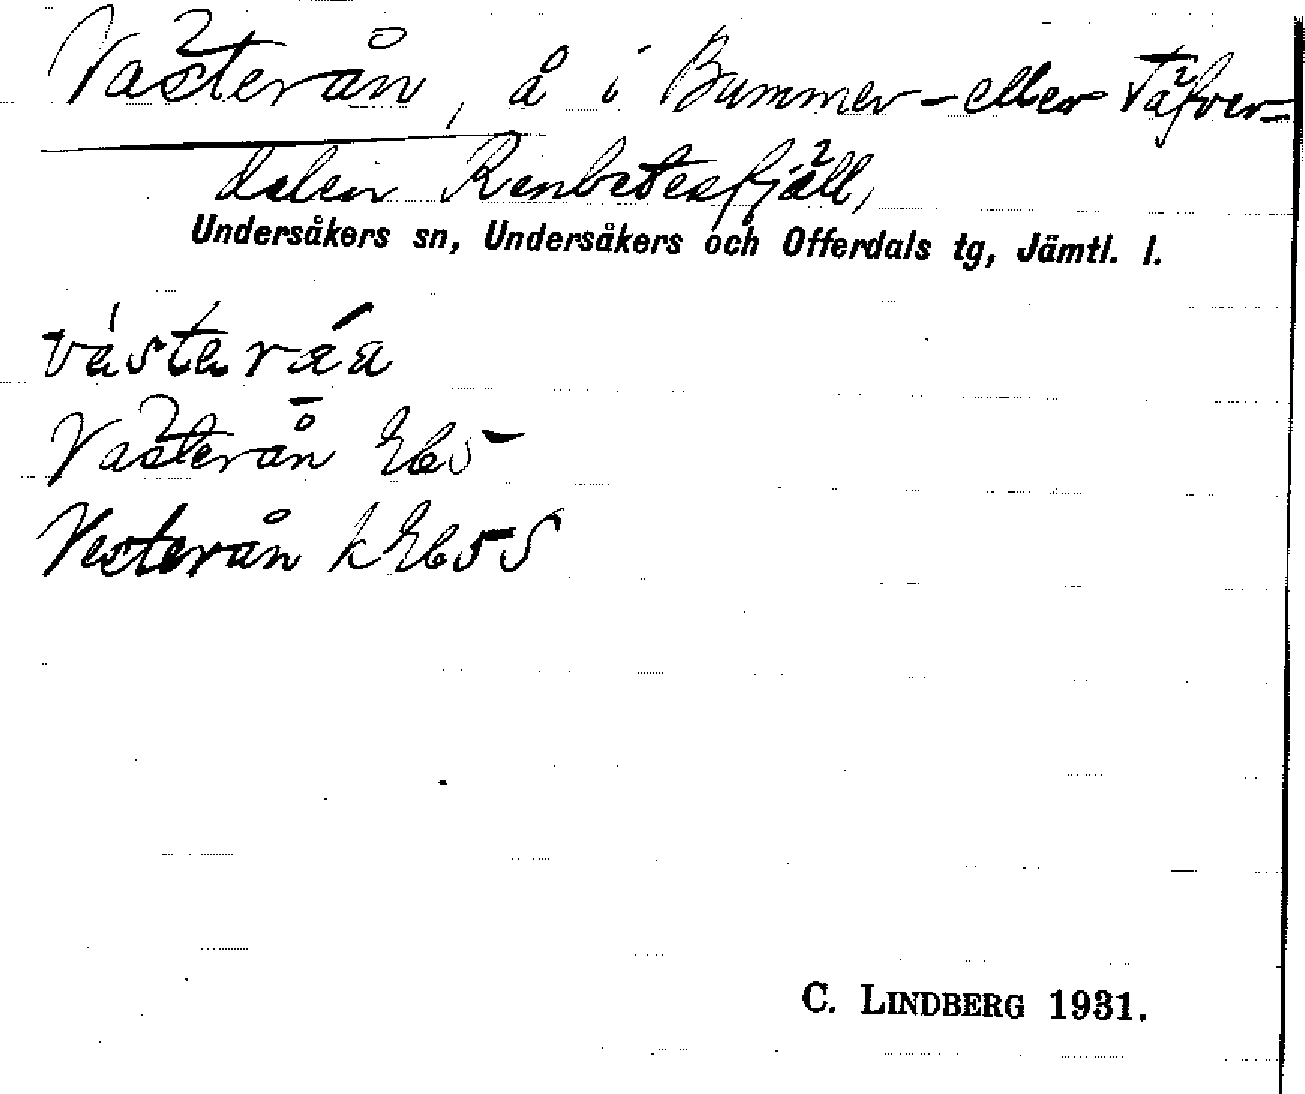 Västerån, å i Bummer- eller Täfver-
dalen Renbetesfjäll,
Undersåkers sn, Undersåkers och Offerdals tg, Jämtl. l.
västaråa
Västerån Eb5
Vesterån k Eb5S
C. LINDBERG 1931.